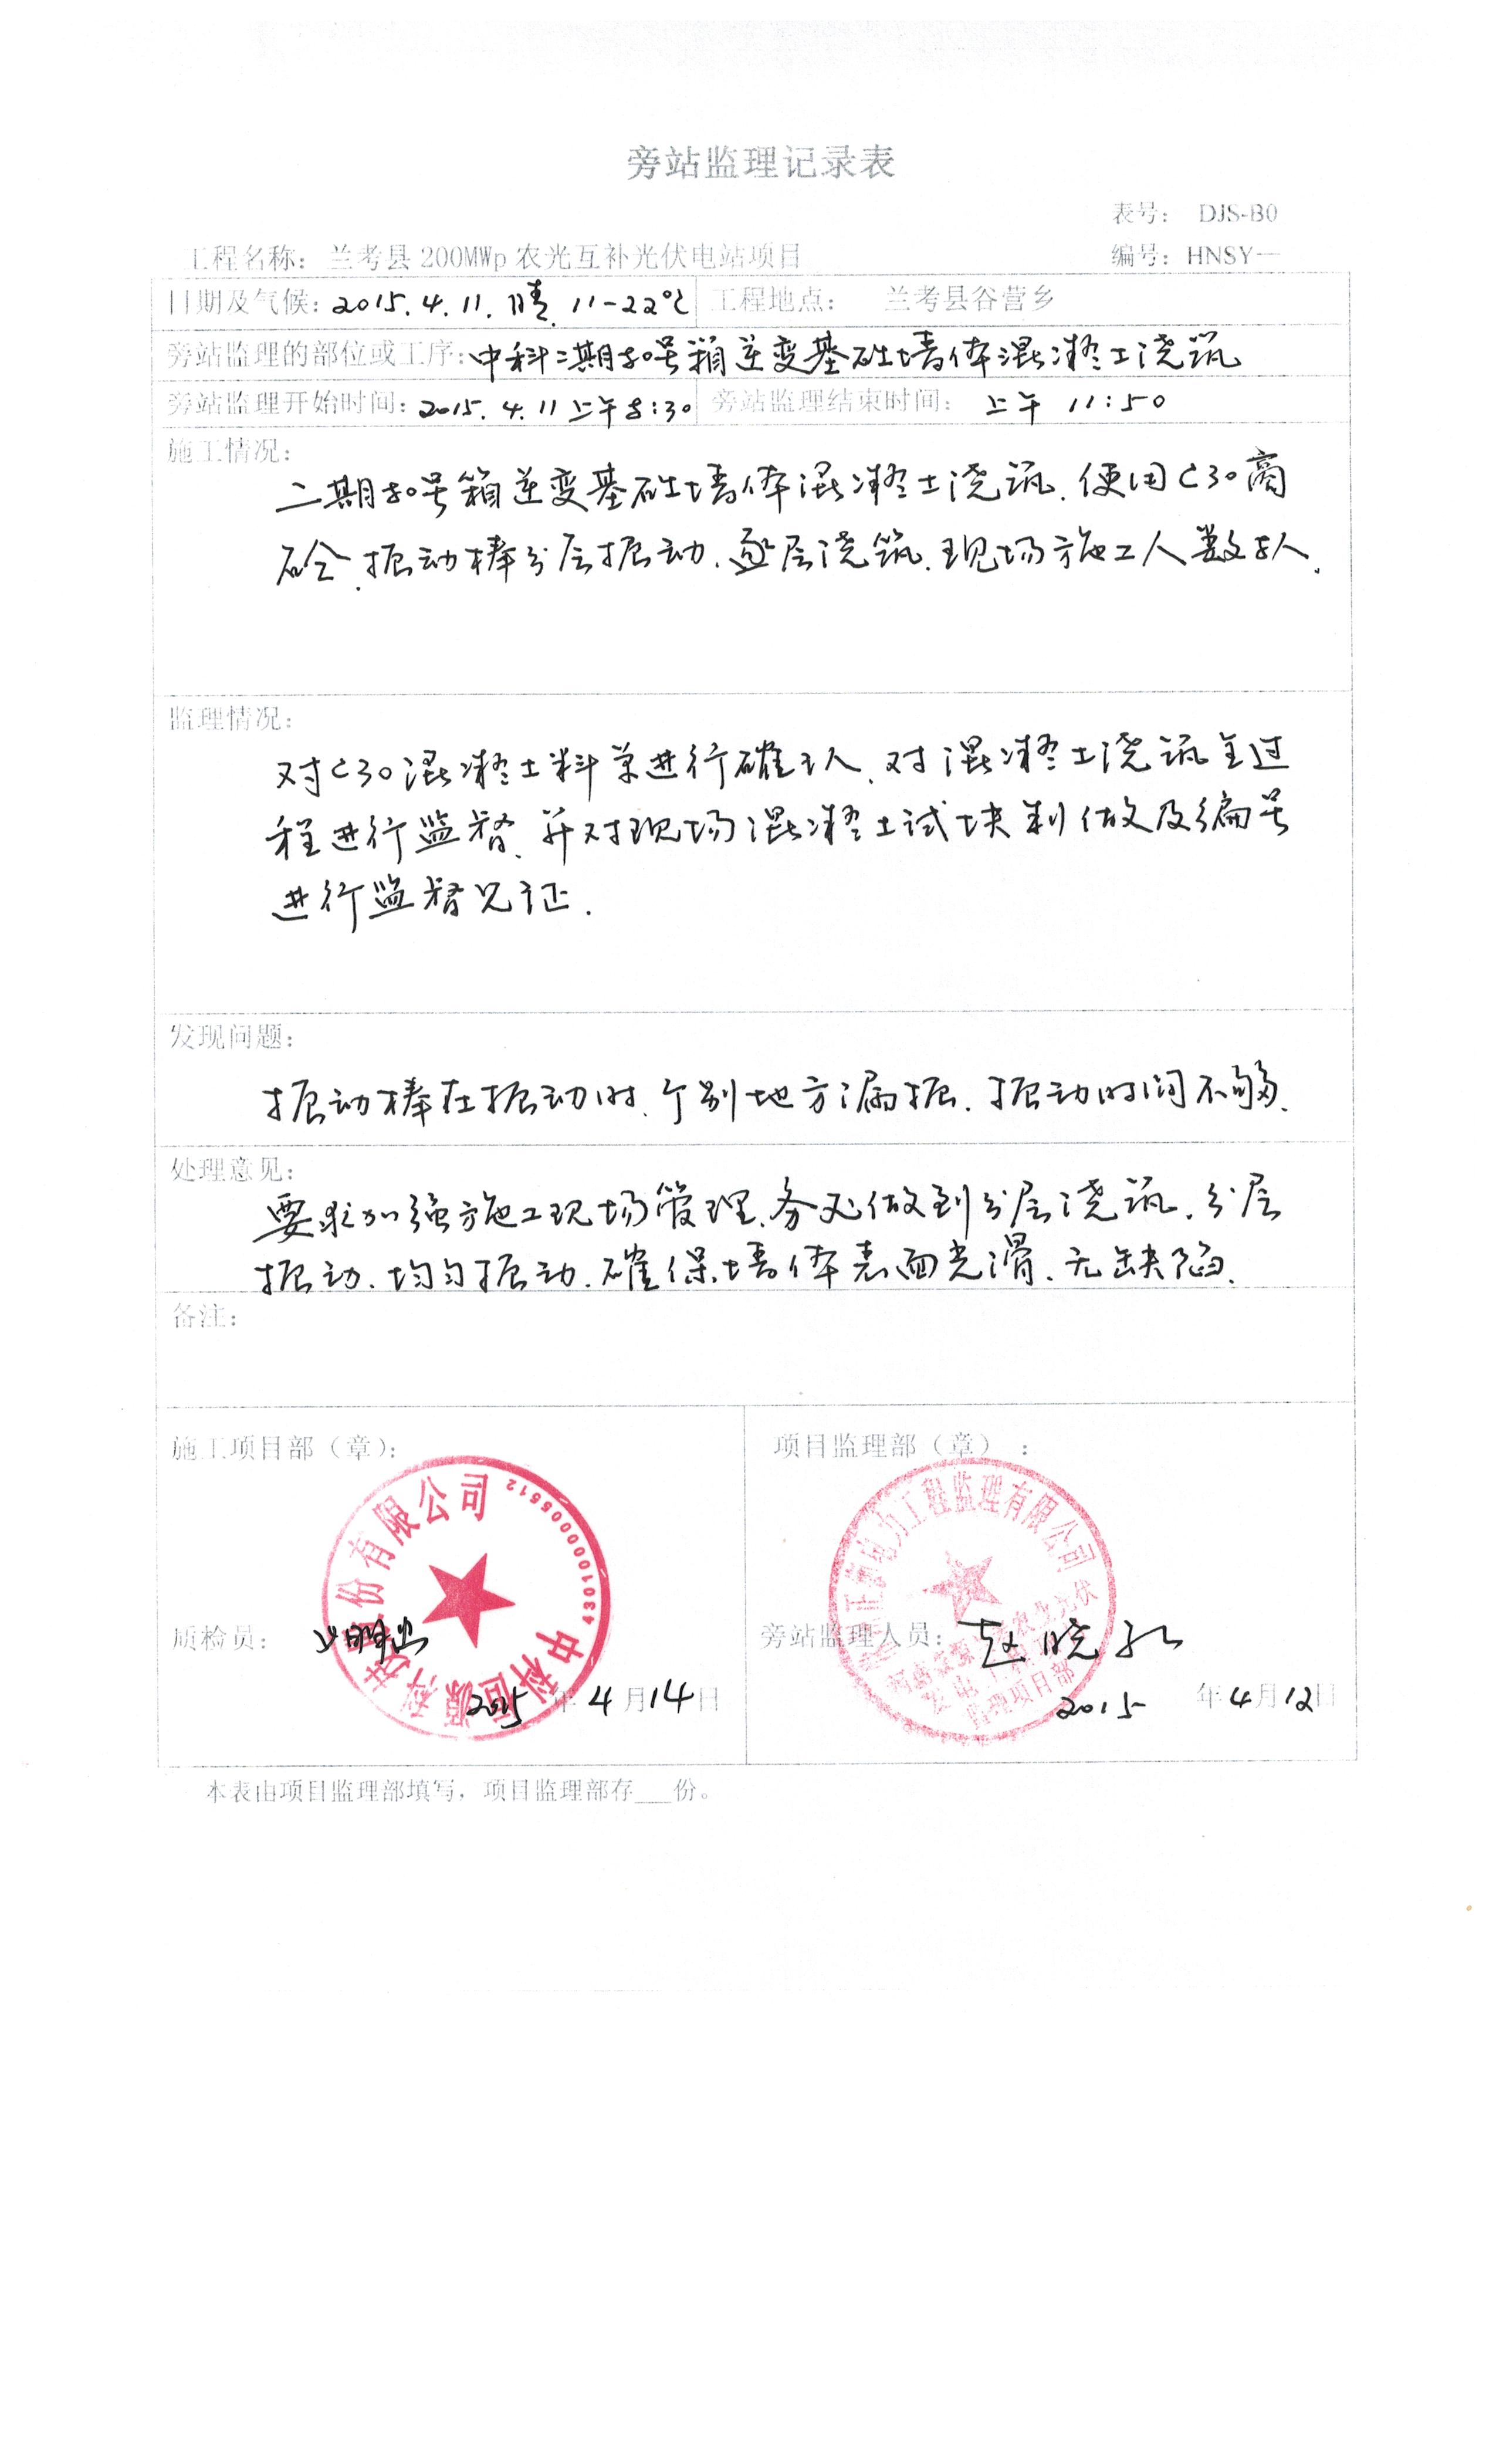 旁站监理记录表
表号： DJS-B0
工程名称：兰考县 200MWp 农光互补光伏电站项目 编号：HNSY—
日期及气候：2015.4.11.晴 11-22℃ 工程地点： 兰考县谷营乡
旁站监理的部位或工序：中科二期 号箱逆变基础墙体混凝土浇筑
旁站监理开始时间：2015.4.11上午8:30 旁站监理结束时间： 上午 11:50
施工情况：
二期 号箱逆变基础墙体混凝土浇筑.使用C30商
砼.振动棒分层振动.逐层浇筑.现场施工人数 人.
监理情况：
对C30混凝土料单进行確认.对混凝土浇筑全过
程进行监督.并对现场混凝土试块制做及编号
进行监督见证.
发现问题：
振动棒在振动时.个别地方漏振.振动时间不够.
处理意见：
要求加强施工现场管理.务必做到分层浇筑.分层
振动.均匀振动.確保墙体表面光滑.无缺陷.
备注：
施工项目部（章）： 项目监理部（章） ：
中科恒源科技股份有限公司 4301000005512
电力工程监理有限公司
监理项目部
质检员： 旁站监理人员：赵晓
2015年4月14日 2015年4月12日
本表由项目监理部填写，项目监理部存___份。